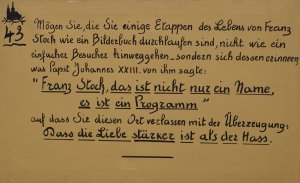 43
Mögen Sie, die Sie einige Etappen des Lebens von Franz
Stock wie ein Bilderbuch durchlaufen sind, nicht wie ein
einfacher Besucher hinweggehen, sondern sich dessen erinnern
was Papst Johannes XXIII. von ihm sagte:
"Franz Stock, das ist nicht nur ein Name,
es ist ein Programm"
auf dass Sie diesen Ort verlassen mit der Überzeugung:
Dass die Liebe stärker ist als der Hass.